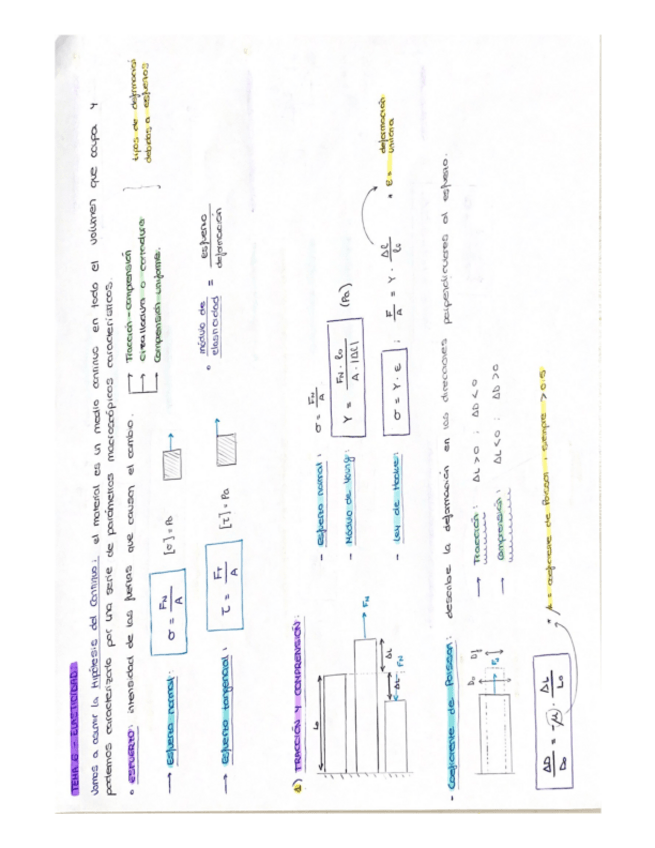 TEMA 6 - ELASTICIDAD:
Vamos a asumir la Hipótesis del Continuo: el material es un medio continuo en todo el volumen que ocupa y
podemos caracterizarlo por una serie de parámetros macroscópicos característicos.
• ESFUERZO: intensidad de las fuerzas que causan el cambio.
Tracción-comprensión
cizalladura o cortadura
comprensión uniforme.
tipos de deformación
debidos a esfuerzos
→ Esfuerzo normal: σ = F_N / A [σ] = Pa
→ Esfuerzo tangencial: τ = F_T / A [τ] = Pa
• módulo de elasticidad = esfuerzo / deformación
a) TRACCIÓN Y COMPRENSIÓN:
L₀
F_N
ΔL
ΔL F_N
- Esfuerzo normal: σ = F_N / A
- Módulo de Young: Y = F_N · l₀ / A · |Δl| (Pa)
- Ley de Hooke: σ = Y · ε ; F / A = Y · Δl / l₀ • ε = deformación unitaria
- Coeficiente de Poisson: describe la deformación en las direcciones perpendiculares al esfuerzo.
D₀ D
→ Tracción: ΔL > 0 ; ΔD < 0
→ Comprensión: ΔL < 0 ; ΔD > 0
ΔD / D₀ = -μ · ΔL / L₀
* μ = coeficiente de Poisson ; siempre > 0.5